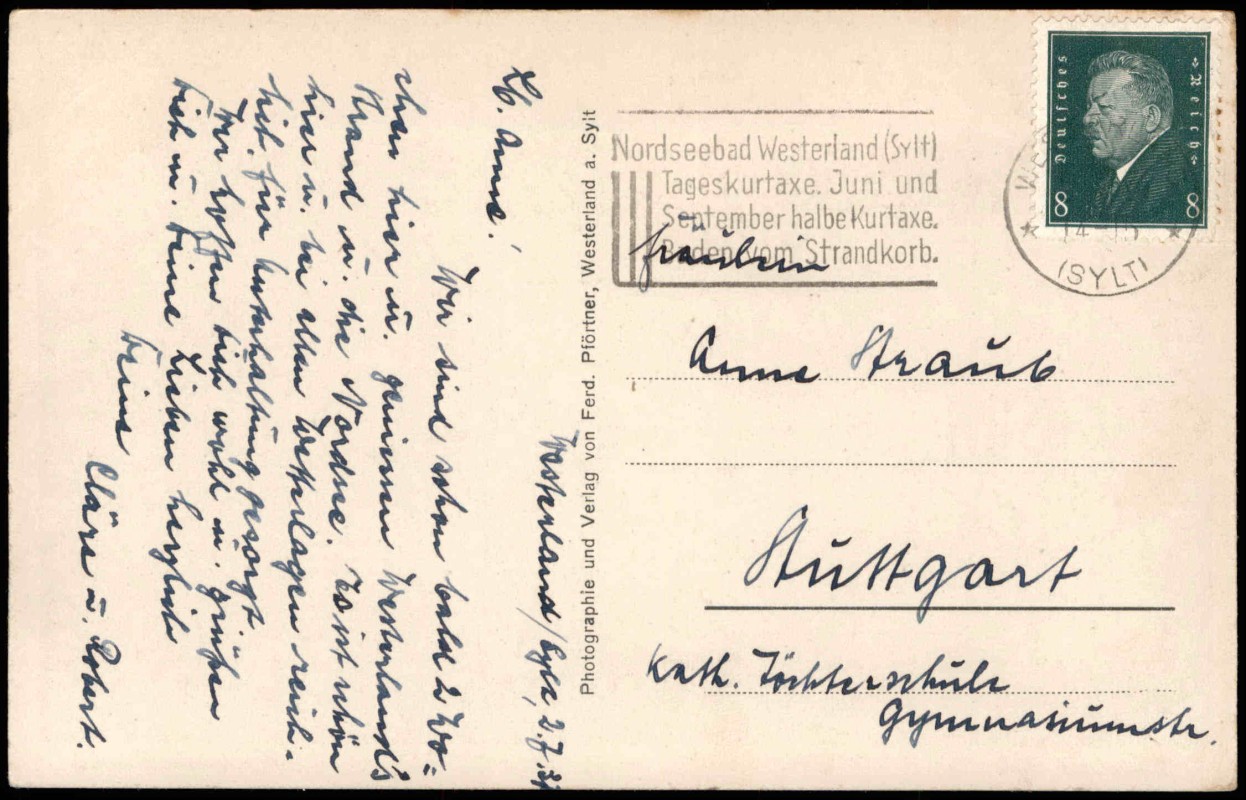 Westerland/Sylt, 2.7.31
Lb. Anne!
Wir sind schon bald 2 Wo=
chen hier u. geniessen Westerland's
Strand u. die Nordsee. Es ist schön
hier u. bei allen Wetterlagen reich-
lich für Unterhaltung gesorgt
Wir hoffen Dich wohl u. grüßen
Dich u. Deine Lieben herzlich
Deine
Cläre u. Robert.
Photographie und Verlag von Ferd. Pförtner, Westerland a. Sylt
Nordseebad Westerland (Sylt)
Tageskurtaxe. Juni und
September halbe Kurtaxe.
Baden vom Strandkorb.
Deutsches
Reich
8 8
(SYLT)
Fräulein
Anne Straub
Stuttgart
Kath. Töchterschule
Gymnasiumstr.